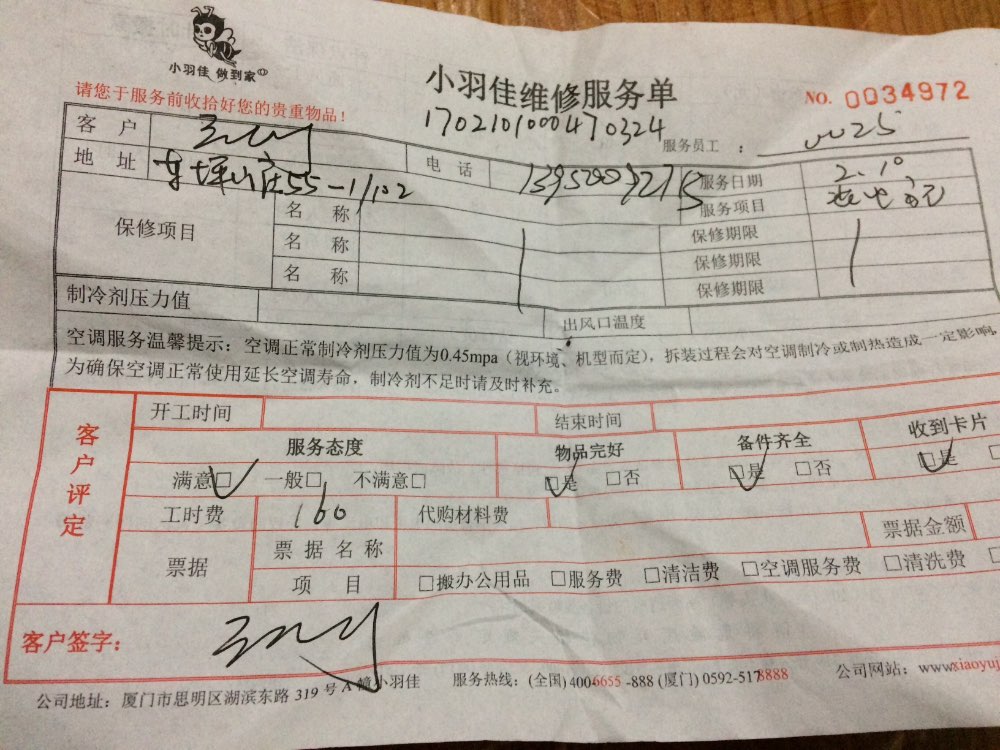 小羽佳 做到家
请您于服务前收拾好您的贵重物品！
小羽佳维修服务单
NO. 0034972
1702101000470324
服务员工：
客户
地址 东坪山庄55-1/102 电话 服务日期 2.10
保修项目 名称 服务项目
名称 保修期限
名称 保修期限
保修期限
制冷剂压力值 出风口温度
空调服务温馨提示：空调正常制冷剂压力值为0.45mpa（视环境、机型而定），拆装过程会对空调制冷或制热造成一定影响
为确保空调正常使用延长空调寿命，制冷剂不足时请及时补充。
客户评定
开工时间 结束时间
服务态度 物品完好 备件齐全 收到卡片
满意□ 一般□ 不满意□ □是 □否 □是 □否 □是
工时费 160 代购材料费
票据 票据名称 票据金额
项目 □搬办公用品 □服务费 □清洁费 □空调服务费 □清洗费
客户签字：
公司地址：厦门市思明区湖滨东路 319 号 A 幢小羽佳 服务热线：(全国) 400-6655-888 (厦门) 0592-5178888 公司网站：www.xiaoyuj